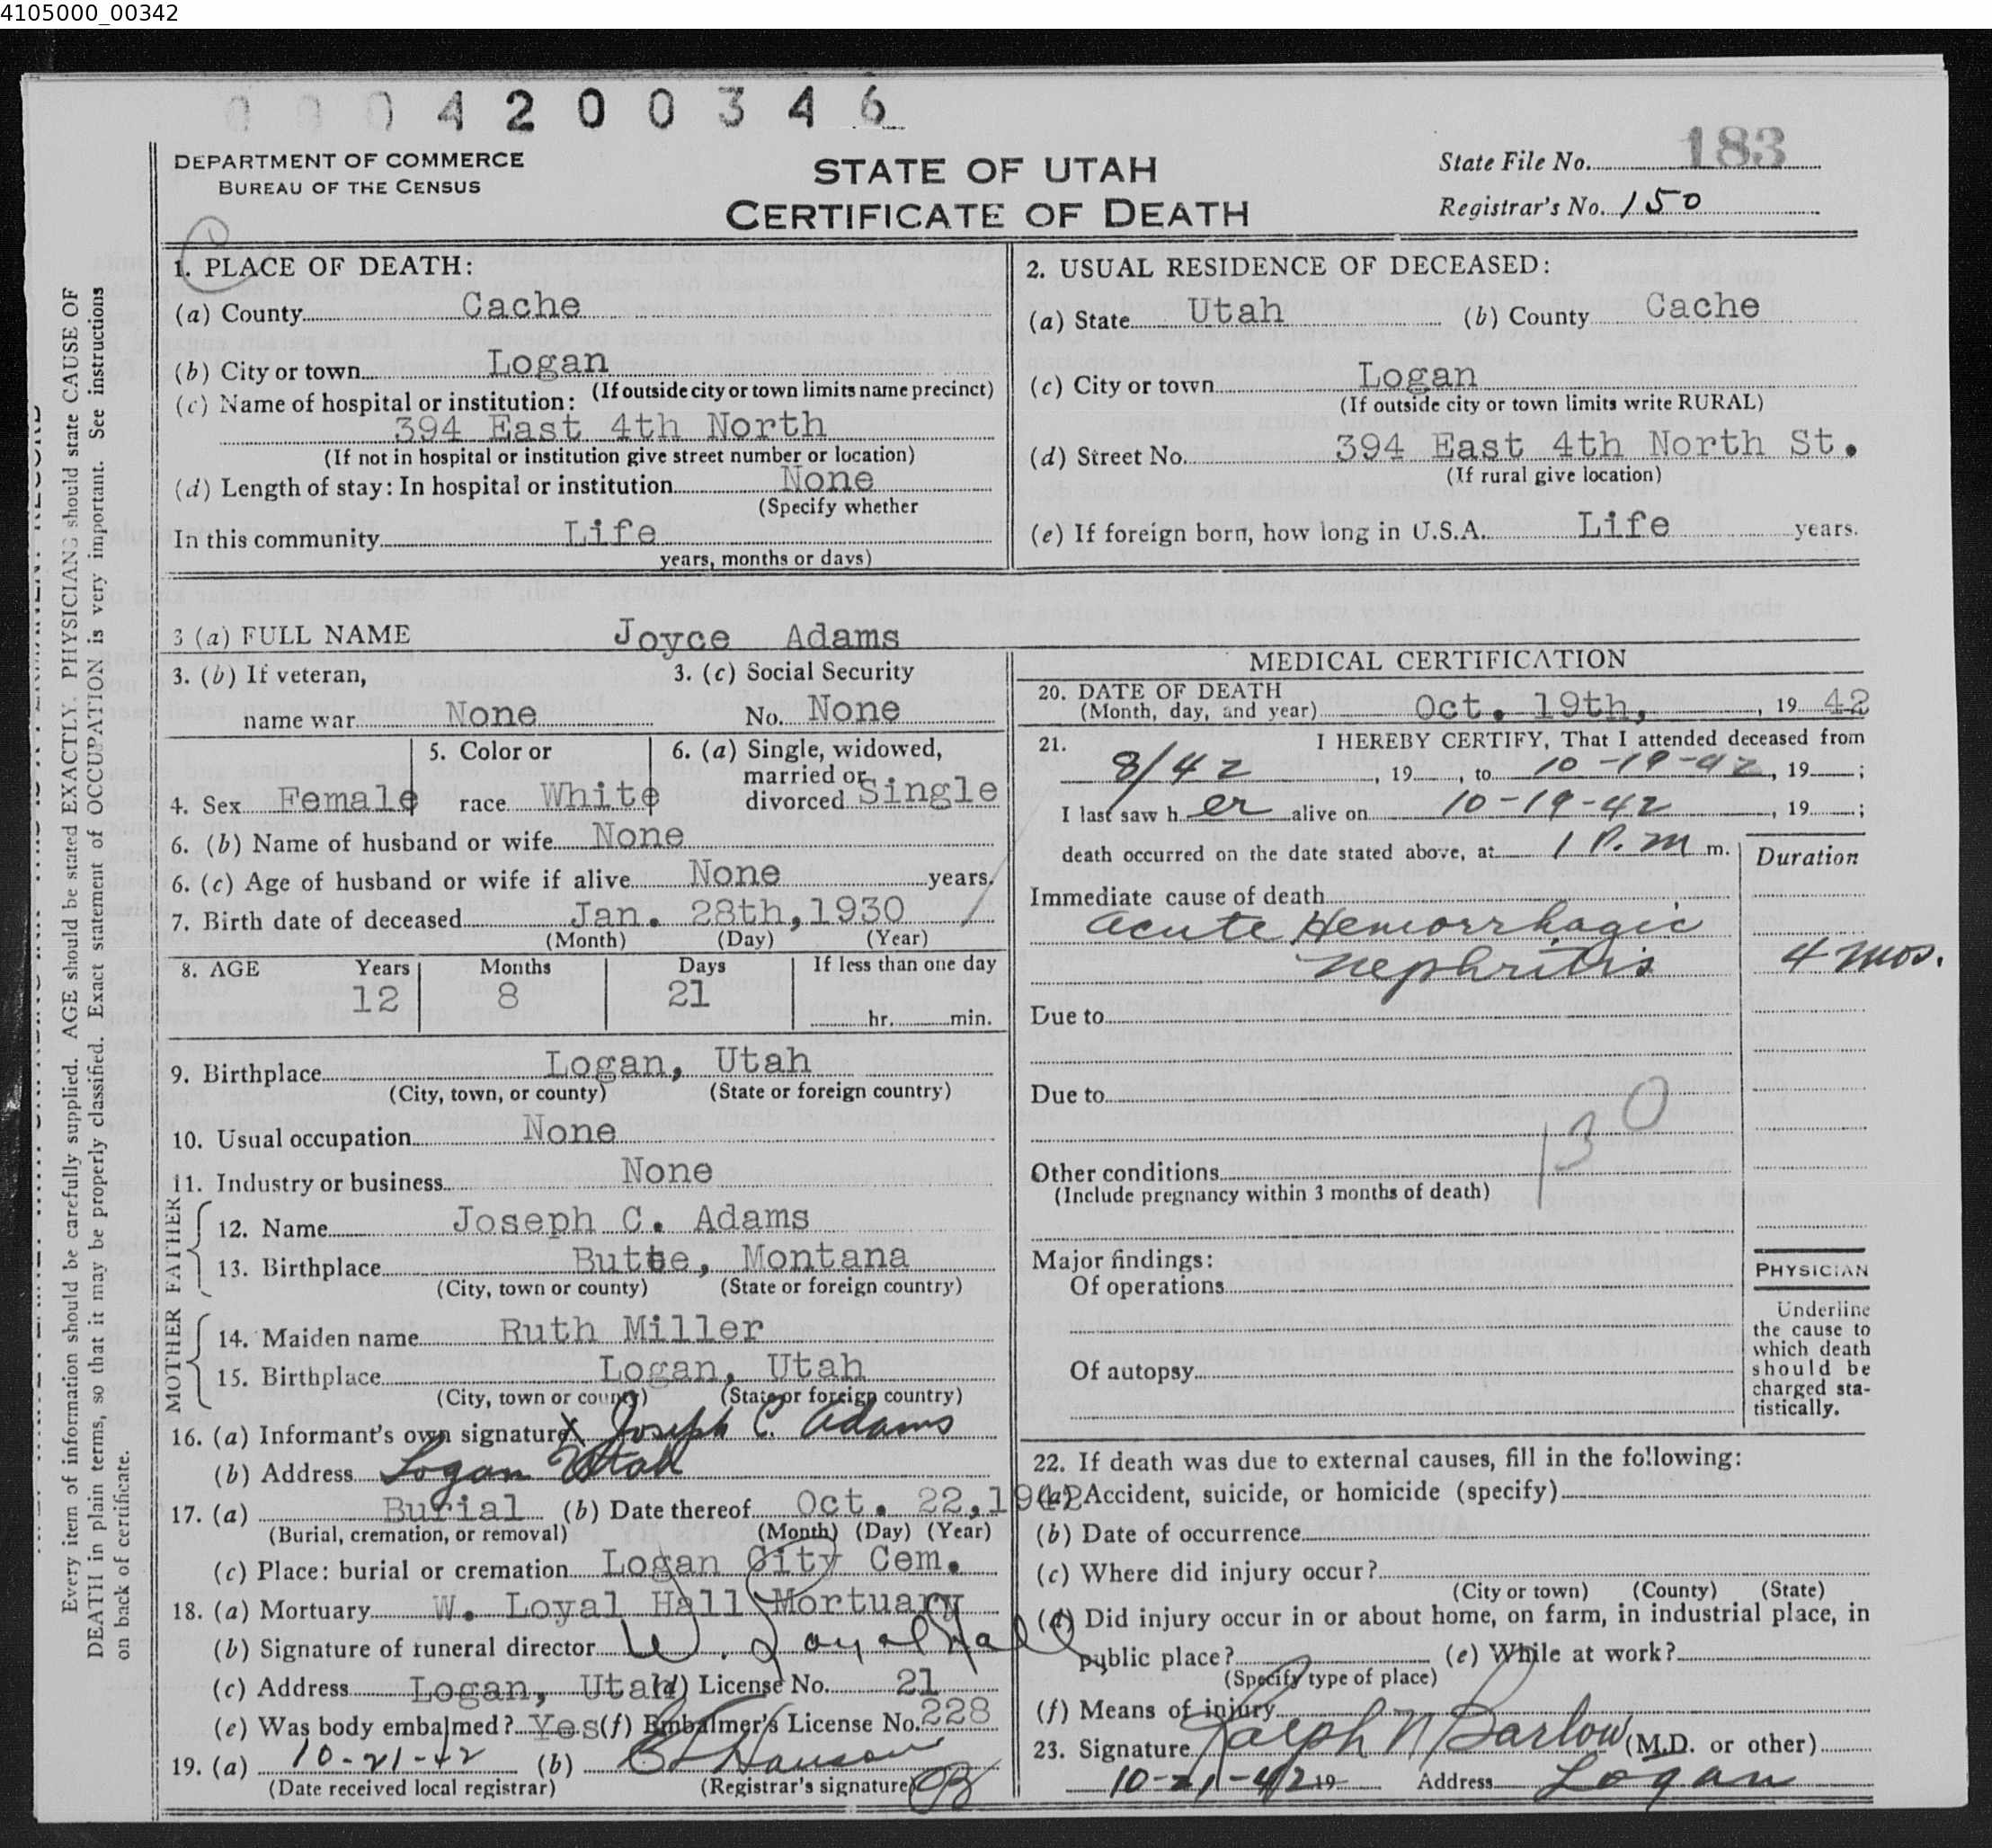 4105000_00342
0 0 0 4 2 0 0 3 4 6
DEPARTMENT OF COMMERCE
BUREAU OF THE CENSUS
STATE OF UTAH
CERTIFICATE OF DEATH
State File No. 183
Registrar's No. 150
1. PLACE OF DEATH:
(a) County Cache
(b) City or town Logan
(If outside city or town limits name precinct)
(c) Name of hospital or institution:
394 East 4th North
(If not in hospital or institution give street number or location)
(d) Length of stay: In hospital or institution None
(Specify whether
In this community Life
years, months or days)
2. USUAL RESIDENCE OF DECEASED:
(a) State Utah (b) County Cache
(c) City or town Logan
(If outside city or town limits write RURAL)
(d) Street No. 394 East 4th North St.
(If rural give location)
(e) If foreign born, how long in U.S.A. Life years.
3 (a) FULL NAME Joyce Adams
3. (b) If veteran,
name war None
3. (c) Social Security
No. None
4. Sex Female
5. Color or
race White
6. (a) Single, widowed,
married or
divorced Single
6. (b) Name of husband or wife None
6. (c) Age of husband or wife if alive None years.
7. Birth date of deceased Jan. 28th, 1930
(Month) (Day) (Year)
8. AGE Years Months Days If less than one day
12 8 21 hr. min.
9. Birthplace Logan, Utah
(City, town, or county) (State or foreign country)
10. Usual occupation None
11. Industry or business None
FATHER
12. Name Joseph C. Adams
13. Birthplace Butte, Montana
(City, town or county) (State or foreign country)
MOTHER
14. Maiden name Ruth Miller
15. Birthplace Logan, Utah
(City, town or county) (State or foreign country)
16. (a) Informant's own signature X Joseph C. Adams
(b) Address Logan Utah
17. (a) Burial (b) Date thereof Oct. 22, 1942
(Burial, cremation, or removal) (Month) (Day) (Year)
(c) Place: burial or cremation Logan City Cem.
18. (a) Mortuary W. Loyal Hall Mortuary
(b) Signature of funeral director W. Loyal Hall
(c) Address Logan, Utah (d) License No. 21
(e) Was body embalmed? Yes (f) Embalmer's License No. 228
19. (a) 10-21-42 (b) Hanson
(Date received local registrar) (Registrar's signature)
MEDICAL CERTIFICATION
20. DATE OF DEATH
(Month, day, and year) Oct. 19th, , 19 42
21. I HEREBY CERTIFY, That I attended deceased from
8/42 , 19 , to 10-19-42 , 19 ;
I last saw h er alive on 10-19-42 , 19 ;
death occurred on the date stated above, at 1 P.M m.
Duration
Immediate cause of death
Acute Hemorrhagic
Nephritis 4 mos.
Due to
Due to
130
Other conditions
(Include pregnancy within 3 months of death)
Major findings:
Of operations
Of autopsy
PHYSICIAN
Underline
the cause to
which death
should be
charged sta-
tistically.
22. If death was due to external causes, fill in the following:
(a) Accident, suicide, or homicide (specify)
(b) Date of occurrence
(c) Where did injury occur?
(City or town) (County) (State)
(d) Did injury occur in or about home, on farm, in industrial place, in
public place? (e) While at work?
(Specify type of place)
(f) Means of injury
23. Signature Ralph N Barlow (M.D. or other)
10-21-42 19 Address Logan
Every item of information should be carefully supplied. AGE should be stated EXACTLY. PHYSICIANS should state CAUSE OF
DEATH in plain terms, so that it may be properly classified. Exact statement of OCCUPATION is very important. See instructions
on back of certificate.